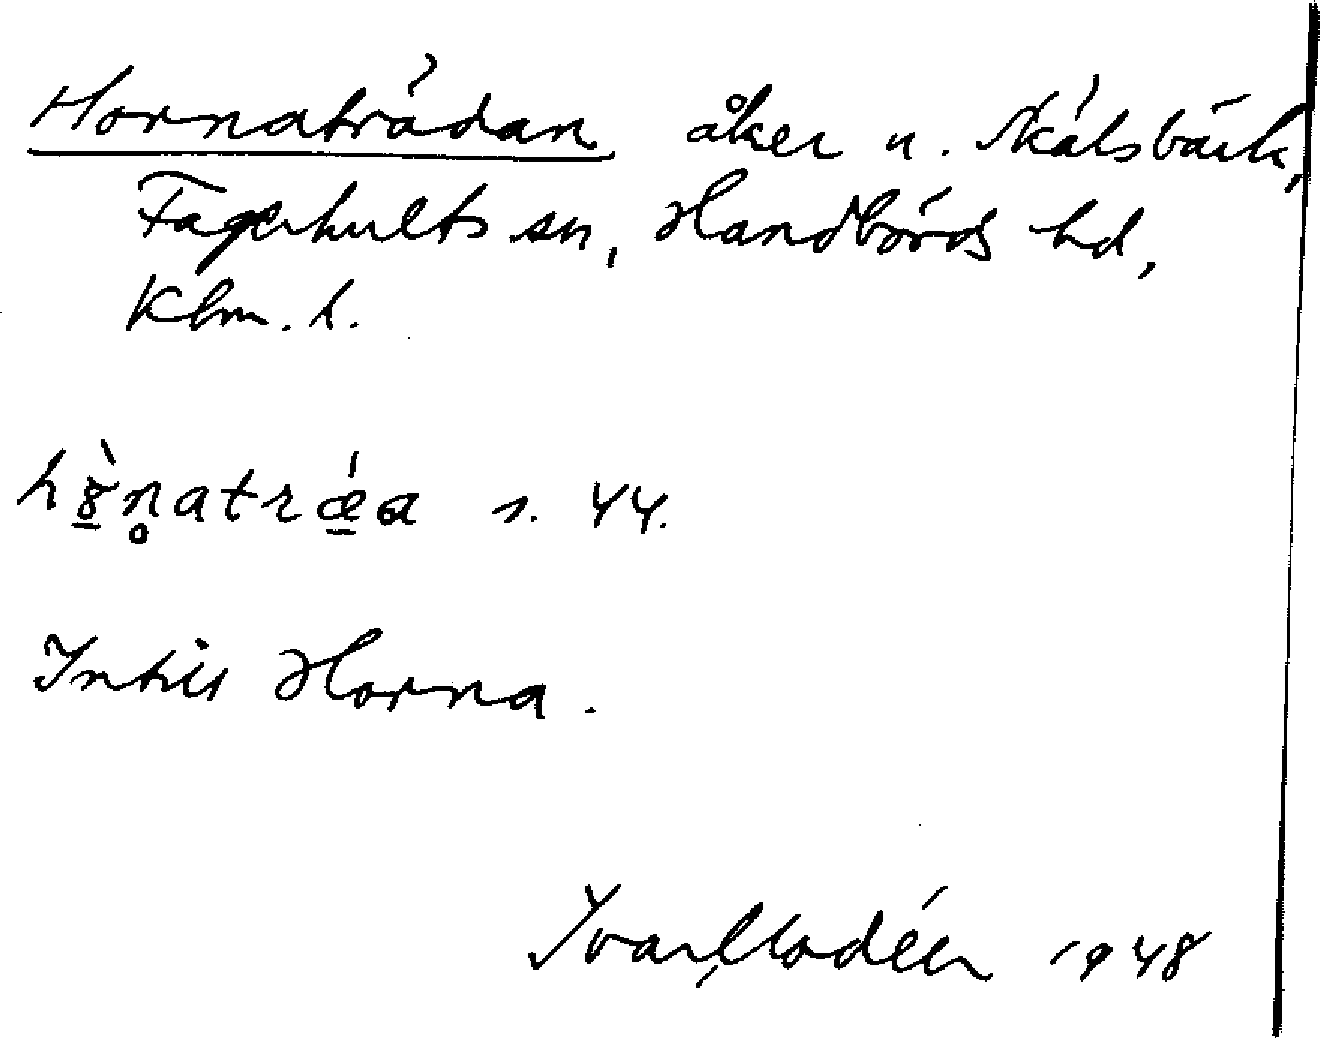 Hornaträdan åker u. Skälsbäck,
Fagerhults sn, Handbörds hd,
Klm. l.
hn̥atræa s. 44.
Intill Horna.
Ivar Modéer 1948